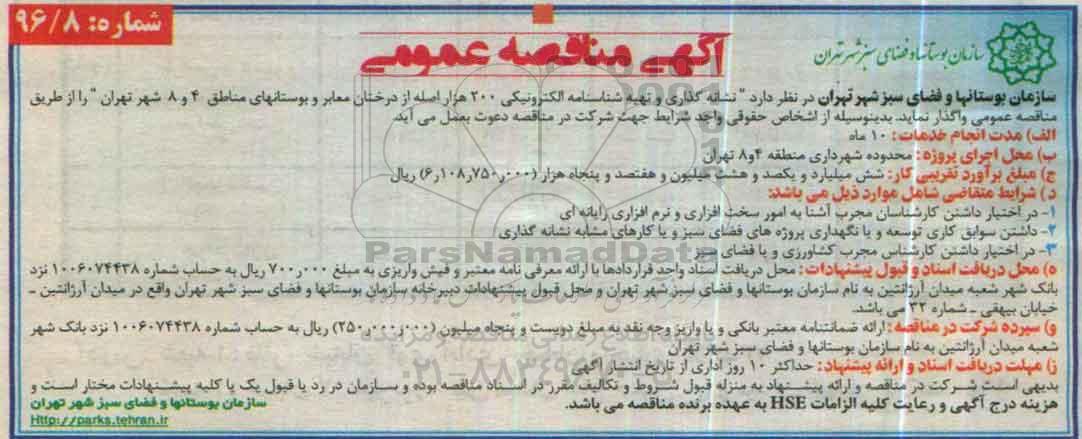 شماره: ۹۶/۸
آگهی مناقصه عمومی
سازمان بوستانها و فضای سبز شهر تهران
سازمان بوستانها و فضای سبز شهر تهران در نظر دارد " نشانه گذاری و تهیه شناسنامه الکترونیکی ۲۰۰ هزار اصله از درختان معابر و بوستانهای مناطق ۴ و ۸ شهر تهران " را از طریق
مناقصه عمومی واگذار نماید. بدینوسیله از اشخاص حقوقی واجد شرایط جهت شرکت در مناقصه دعوت بعمل می آید.
الف) مدت انجام خدمات: ۱۰ ماه
ب) محل اجرای پروژه: محدوده شهرداری منطقه ۴و۸ تهران
ج) مبلغ برآورد تقریبی کار: شش میلیارد و یکصد و هشت میلیون و هفتصد و پنجاه هزار (۶٫۱۰۸٫۷۵۰٫۰۰۰) ریال
د) شرایط متقاضی شامل موارد ذیل می باشد:
۱- در اختیار داشتن کارشناسان مجرب آشنا به امور سخت افزاری و نرم افزاری رایانه ای
۲- داشتن سوابق کاری توسعه و یا نگهداری پروژه های فضای سبز و یا کارهای مشابه نشانه گذاری
۳- در اختیار داشتن کارشناس مجرب کشاورزی و یا فضای سبز
ه) محل دریافت اسناد و قبول پیشنهادات: محل دریافت اسناد واحد قراردادها با ارائه معرفی نامه معتبر و فیش واریزی به مبلغ ۷۰۰٫۰۰۰ ریال به حساب شماره ۱۰۰۶۰۷۴۴۳۸ نزد
بانک شهر شعبه میدان آرژانتین به نام سازمان بوستانها و فضای سبز شهر تهران و محل قبول پیشنهادات دبیرخانه سازمان بوستانها و فضای سبز شهر تهران واقع در میدان آرژانتین ـ
خیابان بیهقی ـ شماره ۳۲ می باشد.
و) سپرده شرکت در مناقصه: ارائه ضمانتنامه معتبر بانکی و یا واریز وجه نقد به مبلغ دویست و پنجاه میلیون (۲۵۰٫۰۰۰٫۰۰۰) ریال به حساب شماره ۱۰۰۶۰۷۴۴۳۸ نزد بانک شهر
شعبه میدان آرژانتین به نام سازمان بوستانها و فضای سبز شهر تهران
ز) مهلت دریافت اسناد و ارائه پیشنهاد: حداکثر ۱۰ روز اداری از تاریخ انتشار آگهی
بدیهی است شرکت در مناقصه و ارائه پیشنهاد به منزله قبول شروط و تکالیف مقرر در اسناد مناقصه بوده و سازمان در رد یا قبول یک یا کلیه پیشنهادات مختار است و
هزینه درج آگهی و رعایت کلیه الزامات HSE به عهده برنده مناقصه می باشد.
سازمان بوستانها و فضای سبز شهر تهران
Http://parks.tehran.ir
ParsNamadData